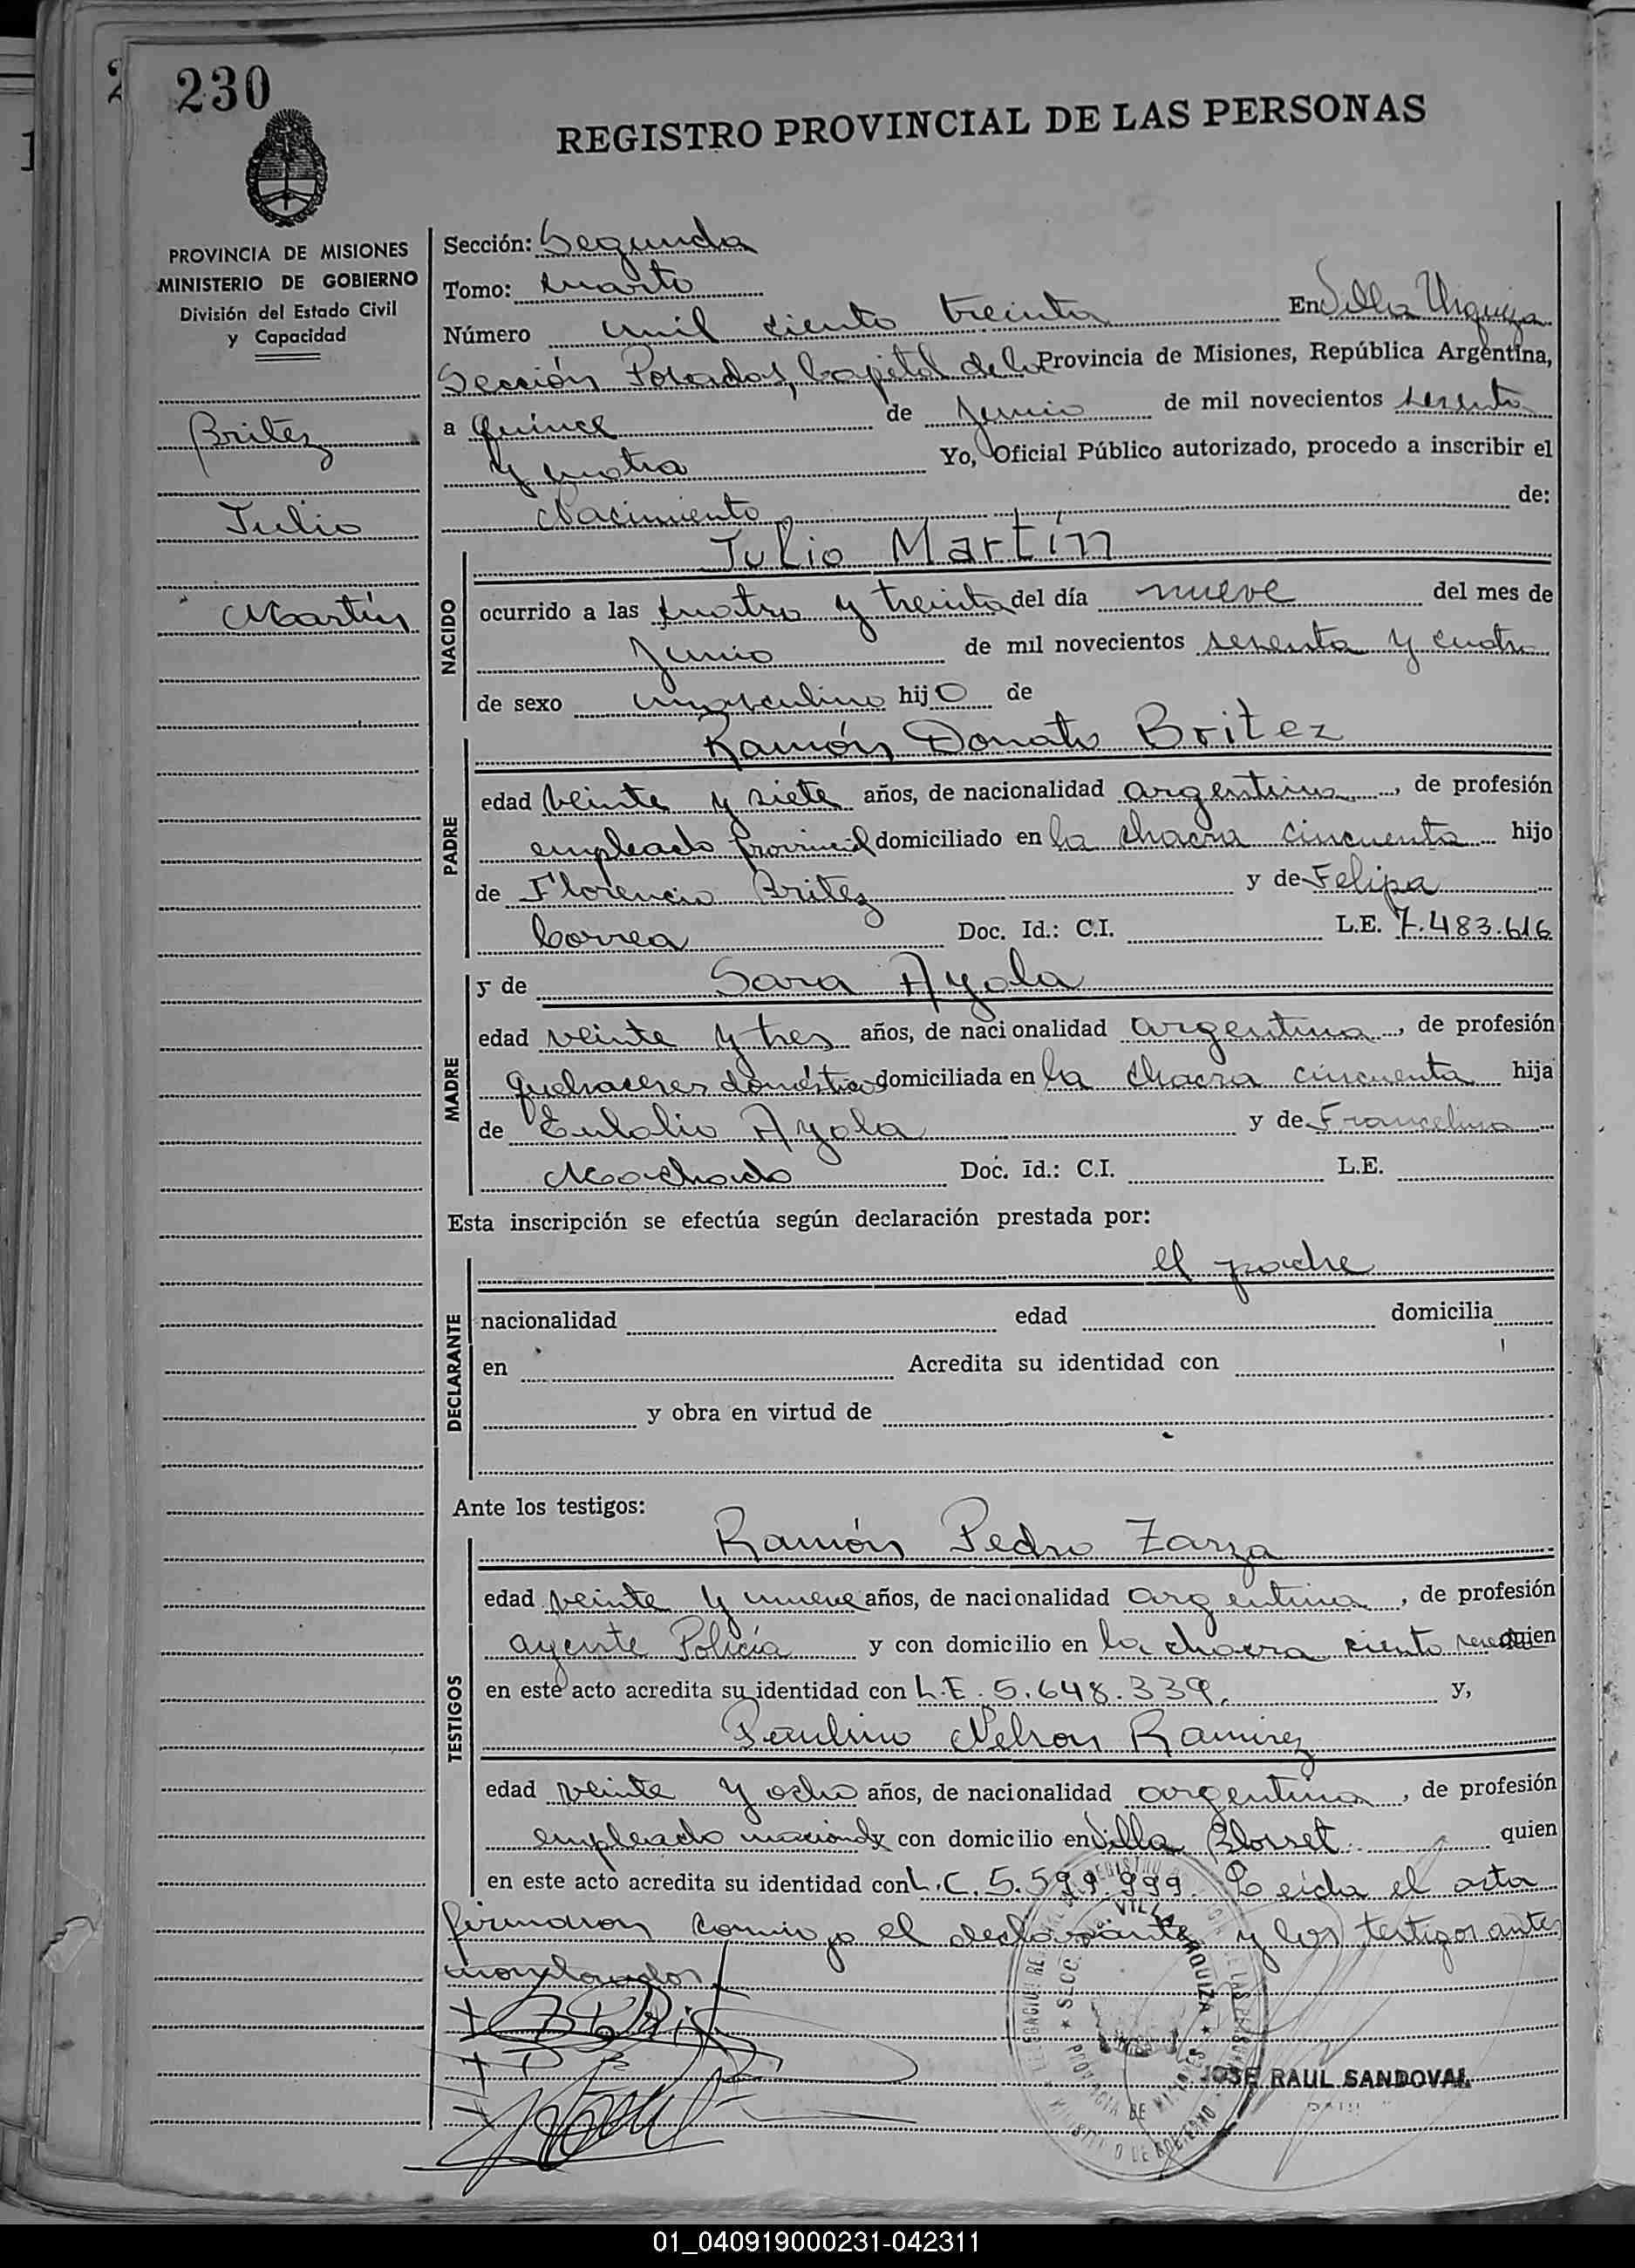 230
REGISTRO PROVINCIAL DE LAS PERSONAS
PROVINCIA DE MISIONES
MINISTERIO DE GOBIERNO
División del Estado Civil
y Capacidad
Britez
Julio
Martín
Sección: Segunda
Tomo: cuarto
Número mil ciento treinta En Villa Urquiza
Sección Posadas, Capital de la Provincia de Misiones, República Argentina,
a quince de Junio de mil novecientos sesenta
y cuatro Yo, Oficial Público autorizado, procedo a inscribir el
Nacimiento de:
NACIDO
Julio Martín
ocurrido a las cuatro y treinta del día nueve del mes de
Junio de mil novecientos sesenta y cuatro
de sexo masculino hijo de
PADRE
Ramón Donato Britez
edad veinte y siete años, de nacionalidad argentina, de profesión
empleado provincial domiciliado en la chacra cincuenta hijo
de Florencio Britez y de Felipa
Correa Doc. Id.: C.I. L.E. 7.483.616
MADRE
y de Sara Ayala
edad veinte y tres años, de nacionalidad argentina, de profesión
quehaceres domésticos domiciliada en la chacra cincuenta hija
de Eulalio Ayala y de Francelina
Machado Doc. Id.: C.I. L.E.
Esta inscripción se efectúa según declaración prestada por:
DECLARANTE
el padre
nacionalidad edad domicilia
en Acredita su identidad con
y obra en virtud de
Ante los testigos:
TESTIGOS
Ramón Pedro Zarza
edad veinte y nueve años, de nacionalidad argentina, de profesión
agente Policía y con domicilio en la chacra ciento quien
en este acto acredita su identidad con L.E. 5.648.339. y,
Paulino Nelson Ramirez
edad veinte y ocho años, de nacionalidad argentina, de profesión
empleado nacional y con domicilio en Villa Blosset quien
en este acto acredita su identidad con L.C. 5.599.999. Leída el acta
firmaron conmigo el declarante y los testigos antes
mencionados.
VILLA URQUIZA
PROVINCIA DE MISIONES
JOSE RAUL SANDOVAL
01_040919000231-042311